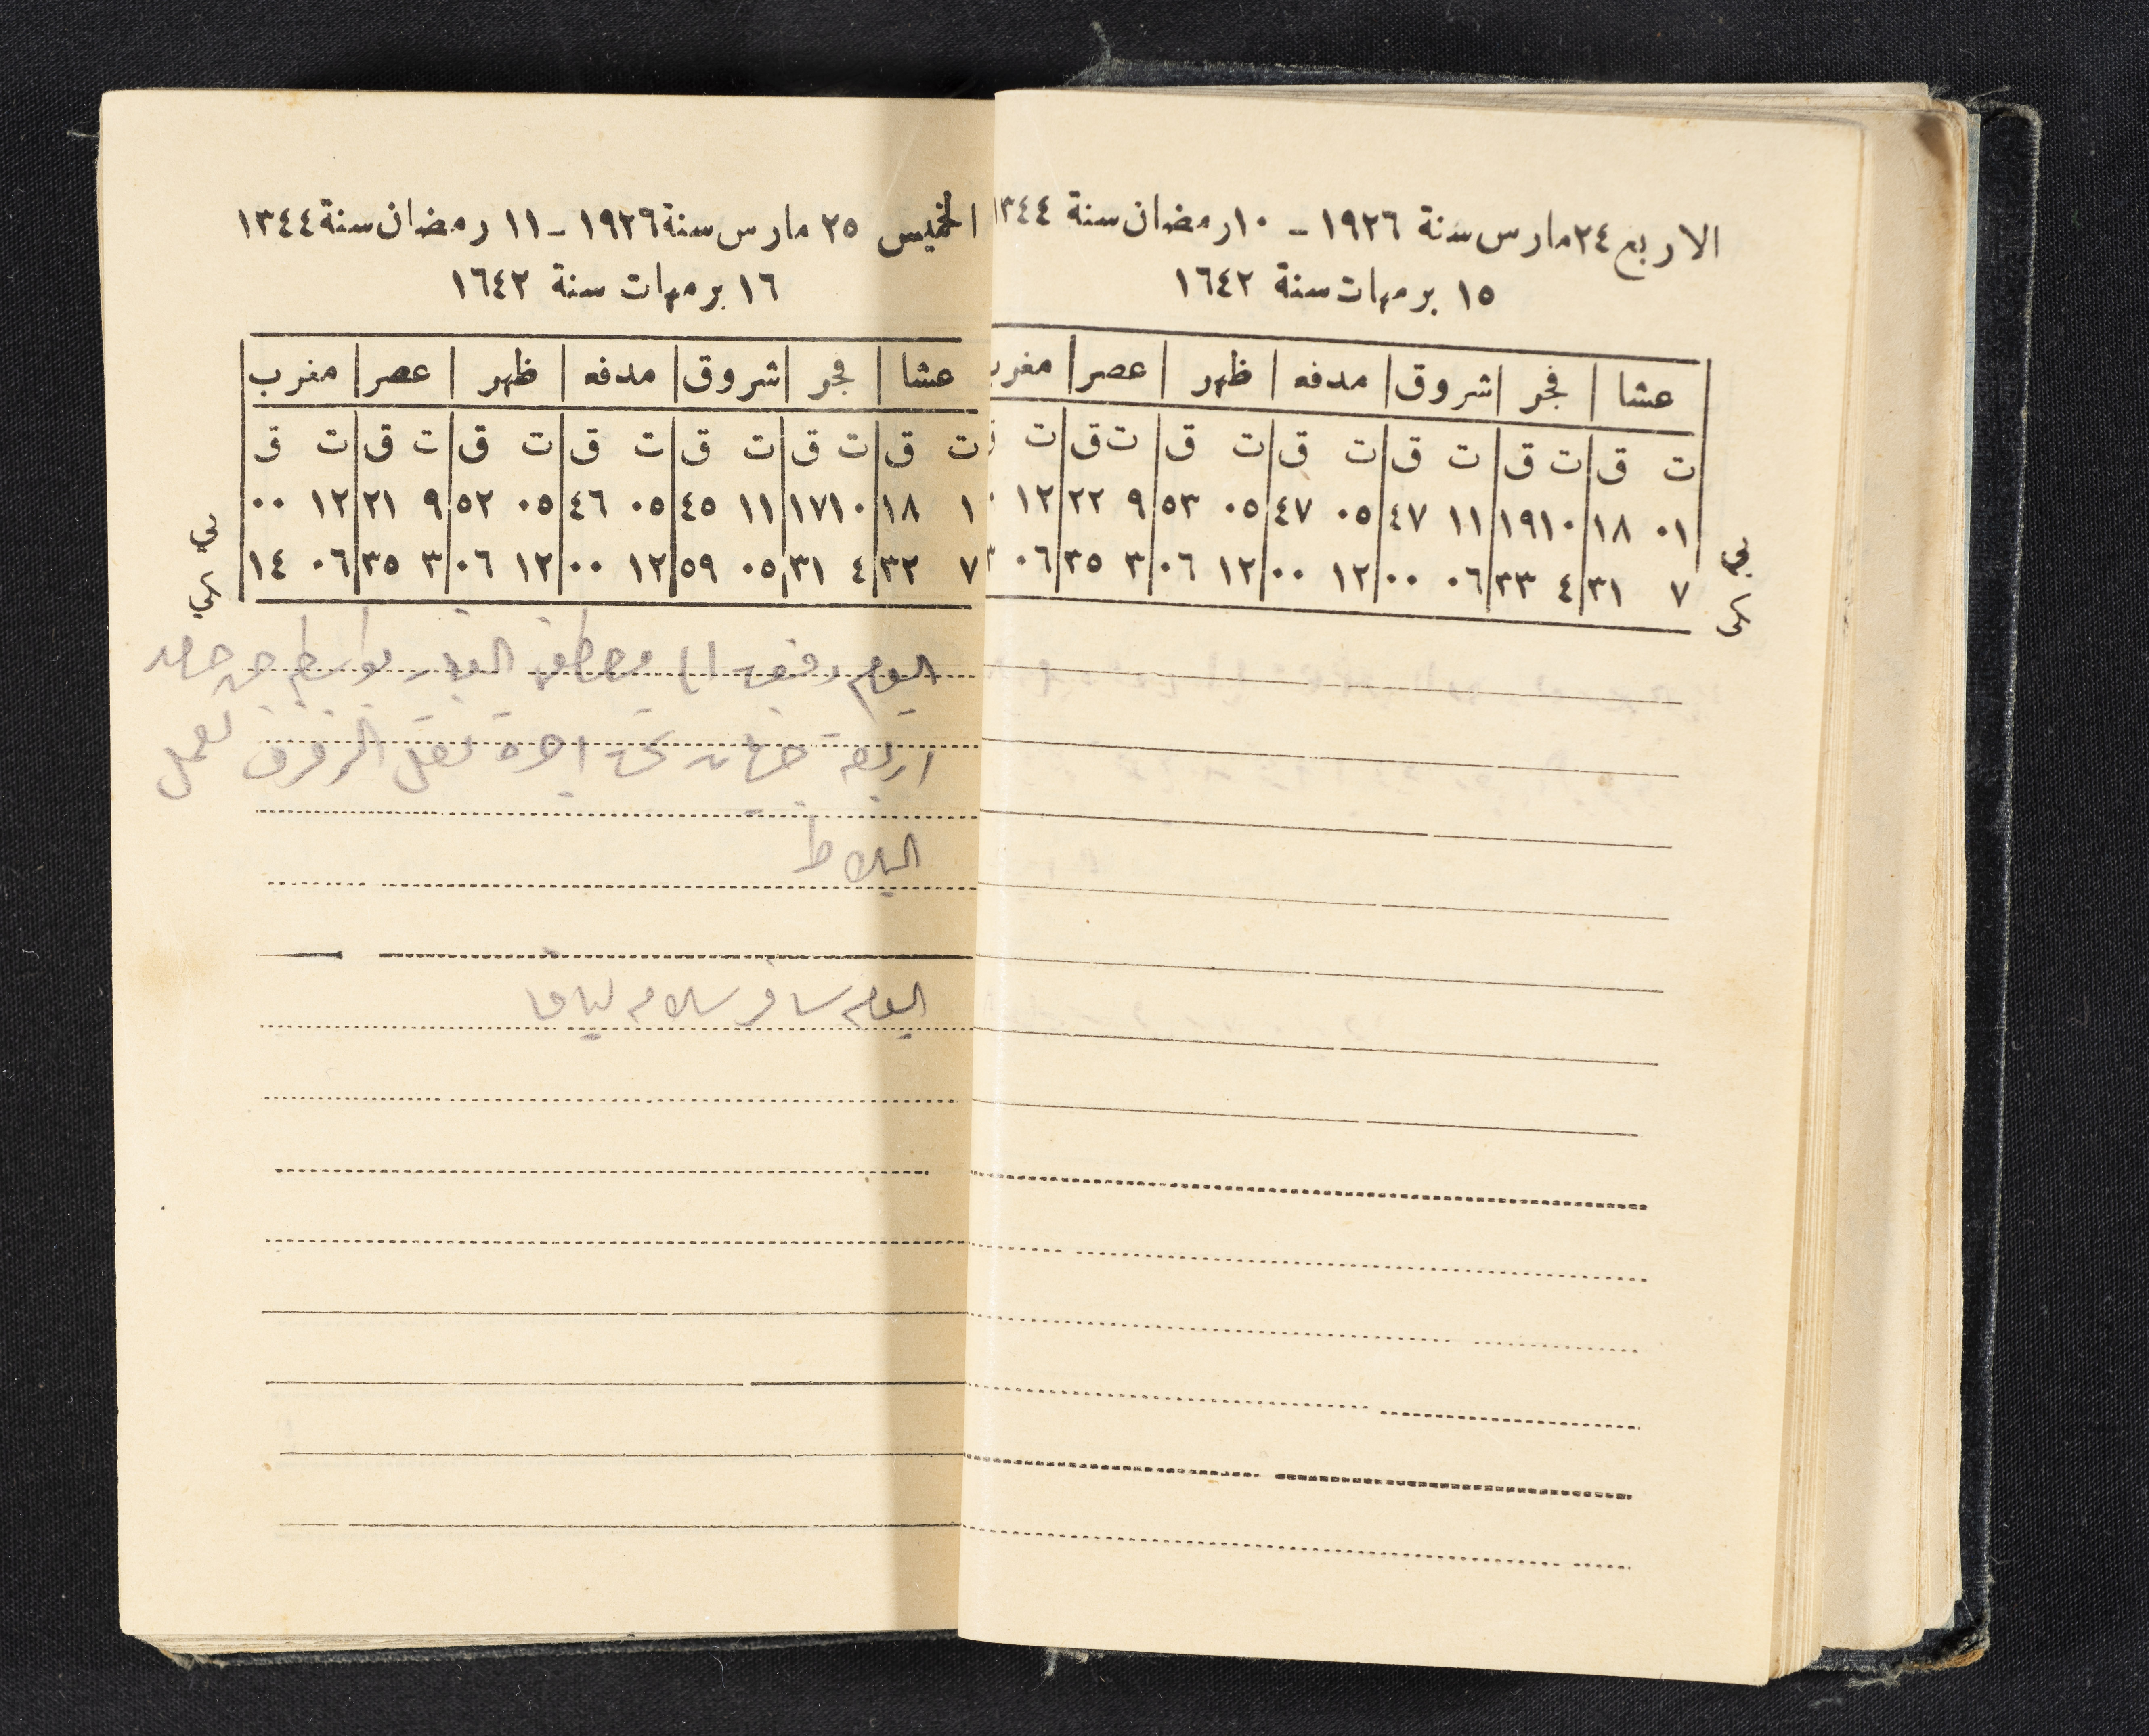 الاربع ٢٤ مارس سنة ١٩٢٦ - ١٠ رمضان سنة ١٣٤٤
١٥ برمهات سنة ١٦٤٢
عشا فجر شروق مدفه ظهر عصر مغرب
ت ق ت ق ت ق ت ق ت ق ت ق ت ق
٠١ ١٨ ١٠ ١٩ ١١ ٤٧ ٠٥ ٤٧ ٠٥ ٥٣ ٩ ٢٢ ١٢
٧ ٣١ ٤ ٣٣ ٠٦ ٠٠ ١٢ ٠٠ ١٢ ٠٦ ٣ ٣٥ ٠٦
الخميس ٢٥ مارس سنة ١٩٢٦ - ١١ رمضان سنة ١٣٤٤
١٦ برمهات سنة ١٦٤٢
عشا فجر شروق مدفه ظهر عصر مغرب
ت ق ت ق ت ق ت ق ت ق ت ق ت ق
١ ١٨ ١٠ ١٧ ١١ ٤٥ ٠٥ ٤٦ ٠٥ ٥٢ ٩ ٢١ ١٢ ٠٠
٧ ٣٢ ٤ ٣١ ٠٥ ٥٩ ١٢ ٠٠ ١٢ ٠٦ ٣ ٣٥ ٠٦ ١٤
اليوم دفعت الى مصطفى
اربعة اجرة نقل الزفزف لعمل
البلاط
اليوم سافر سلام ليافا